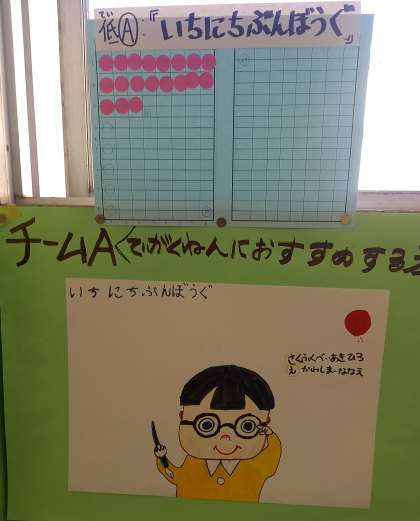 低Ⓐ:『いちにちぶんぼうぐ』
てい
チームA くていがくねんにおすすめする
いちにちぶんぼうぐ
さく ふくべ・あきひろ
え かわしま・ななえ